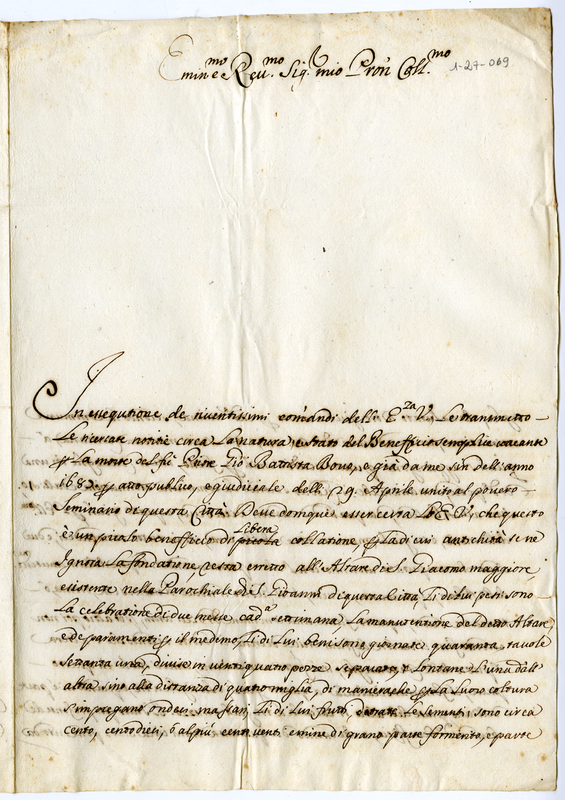 Emin.mo e Reu.mo Sig.r mio Pron Coll.mo
1-27-069
In essequtione de riueritissimi comandi dell' E.za V. Le transmetto
Le ricercate notitie circa La natura, e stato del Benefficio semplice vacante
p La morte del fù Prete Gio Battista Boue, e già da me sin dell'anno
1682 p atto publico, e giudiciale delli 29. Aprile unito al pouero
Seminario di questa Città. Deue donque esser certa L'E.V., che questo
è un picolo benefficio di picola Libera collatione, p la di cui antichità se ne
Ignora La fondatione, resta eretto all'Altare di S. Giacomo maggiore
esistente nella Parochiale di S. Gioanni di questa Città, Li di Lui pesi sono
La celebratione di due messe cad.a settimana La manutentione del detto Altare,
e de paramenti p il medemo, Li di Lui beni sono giornate quaranta, tauole
settanta una, diuise in venti quatro pezze separate, e Lontane L'una dall'
altra sino alla distanza di quatro miglia, di manierache p La Luoro coltura
s'impiegano ondeci massari, Li di Lui frutti, detratte Le sementi, sono circa
cento, centodieci, ò al più cento venti emine di grano parte formento, e parte